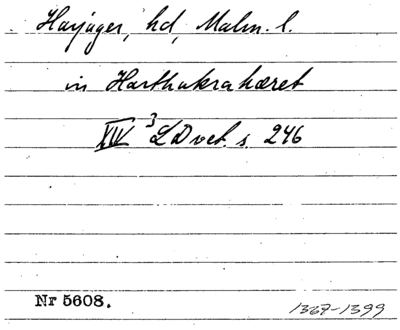 Harjager, hd, Malm. l.
in Harthakrahæret
XIV 3 LD vet. s. 246
Nr 5608.
1367-1399